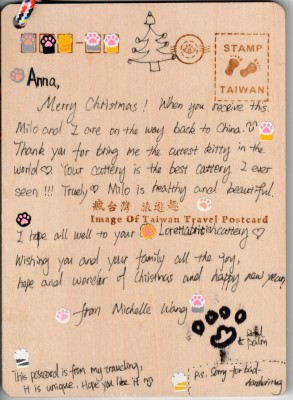 STAMP
TAIWAN
Anna,
Merry Christmas! When you receive this.
Milo and I are on the way back to China.
Thank you for bring me the cutest kitty in the
world Your cattery is the best cattery I ever
seen !!! Truely Milo is healthy and beautiful.
藏台灣 旅遊趣
Image Of Taiwan Travel Postcard
I hope all well to your Lorettabritishcattery
Wishing you and your family all the joy,
hope and wonder of Christmas and happy new year
from Michelle Wang
palm
This postcard is from my traveling,
it is unique. Hope you like it
P.S. Sorry for bad
handwriting